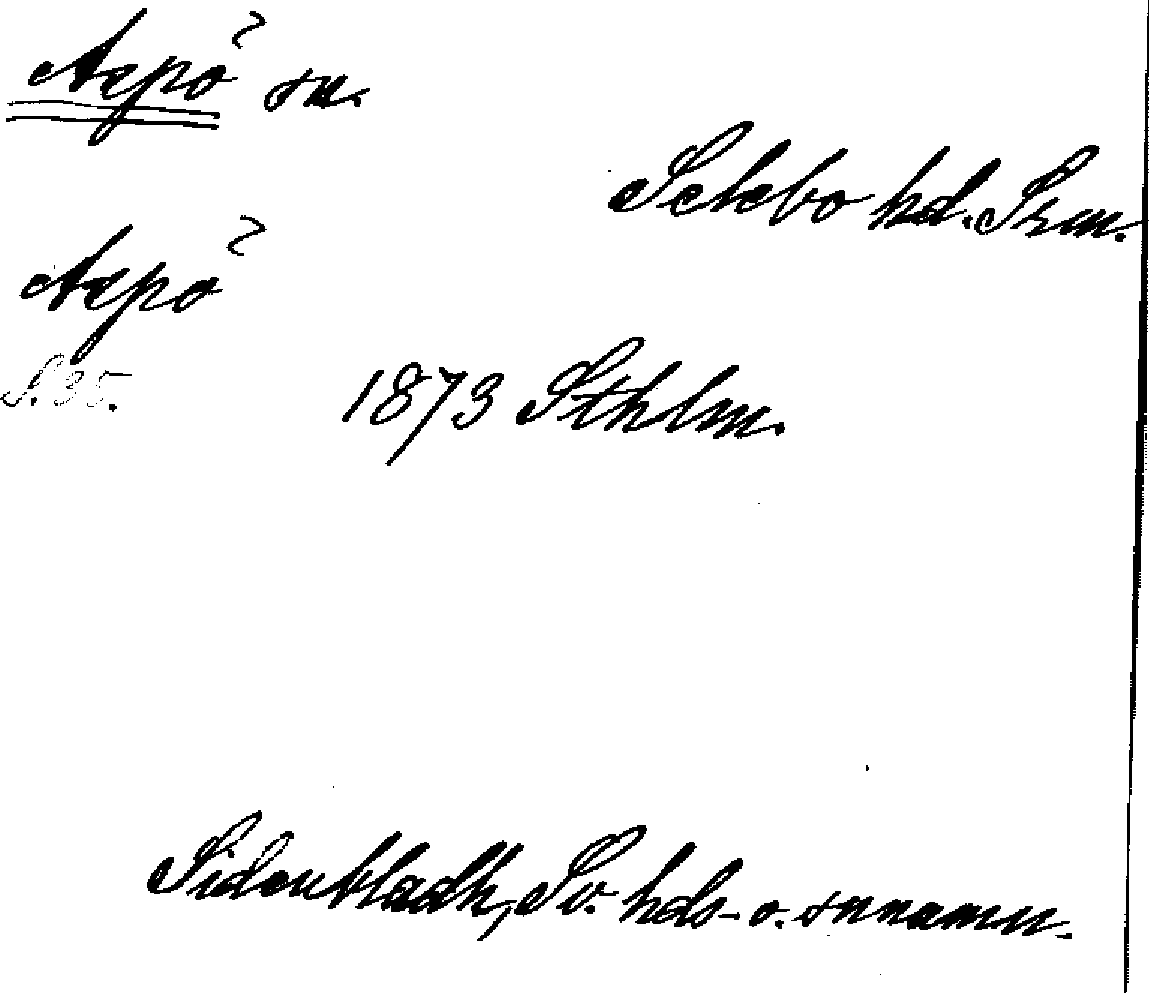 Aspö sn.
Selebo hd. Srm.
Aspö
S. 35.
1873 Sthlm.
Sidenbladh, Sv. hds- o. snnamn.